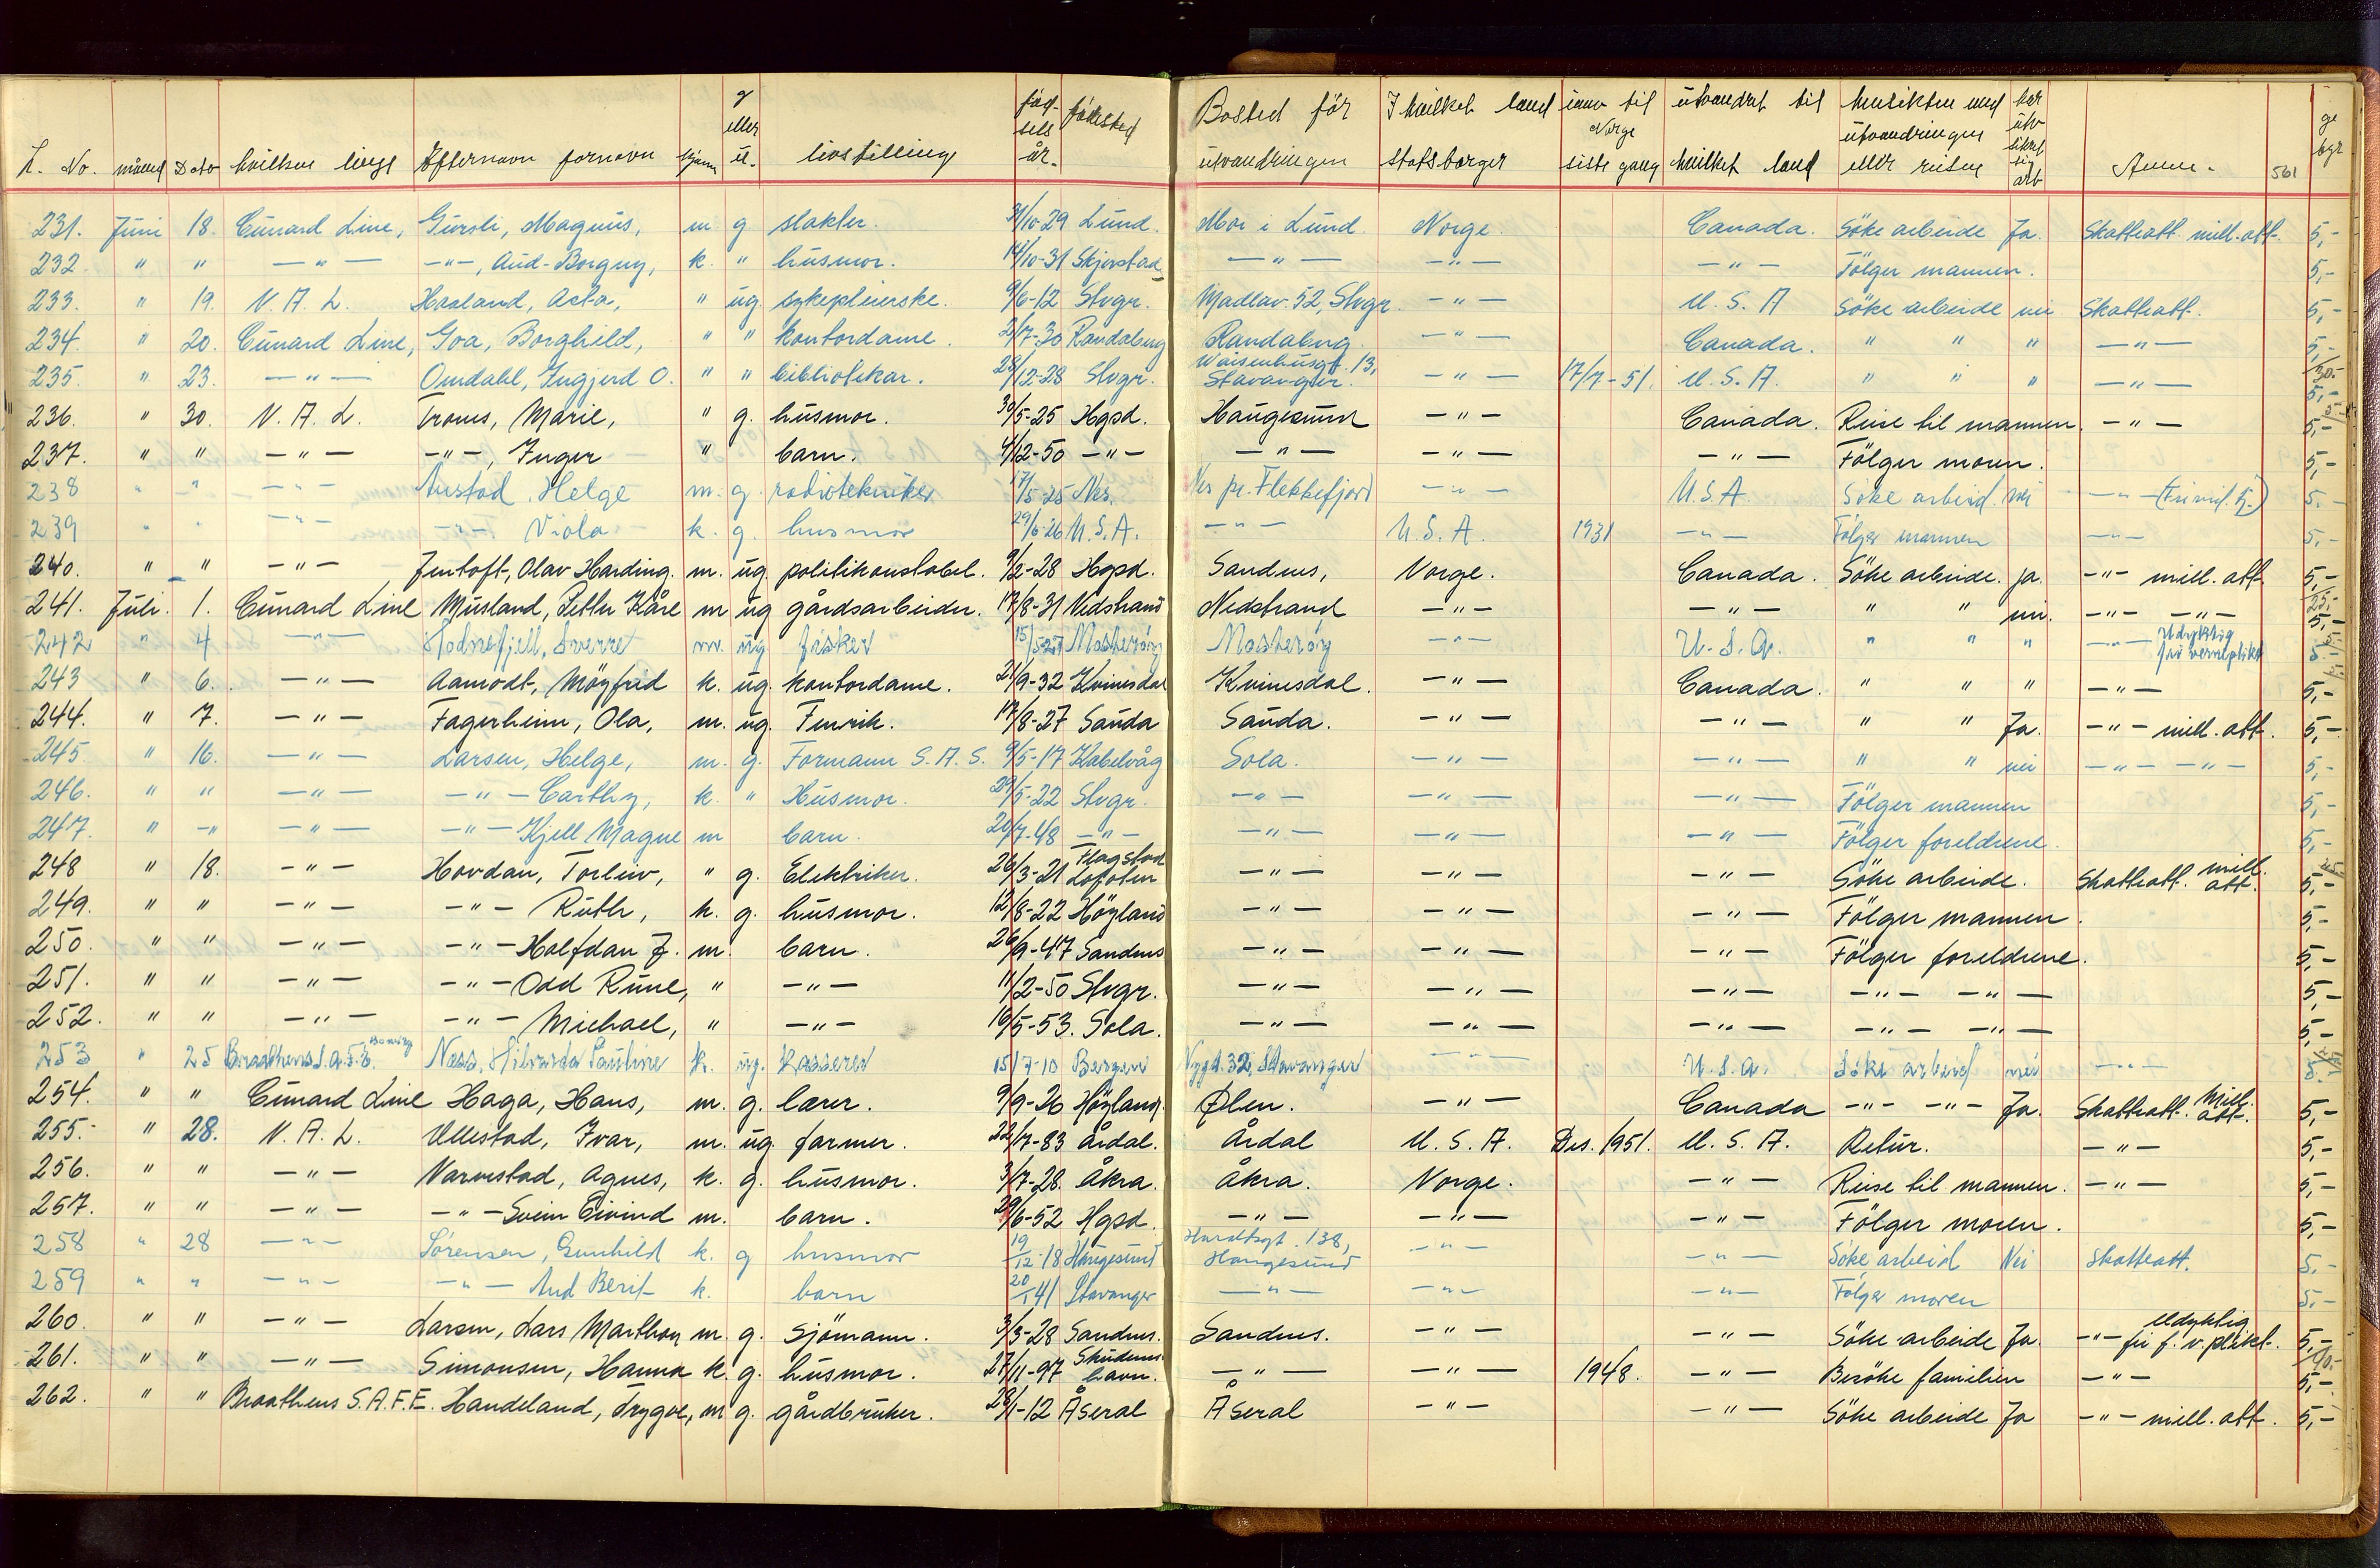 L. No. måned Dato hvilken linje Efternavn fornavn kjønn g eller u. livsstilling fødselsår fødested Bosted før utvandringen I hvilket land statsborger innv til Norge siste gang utvandret til hvilket land hensikten med utvandringen eller reisen har utv sikret sig arb Anm. 561 ge byr
231. Juni 18. Cunard Line, Gursli, Magnus, m g slakter. 31/10-29 Lund. Mor i Lund Norge. Canada. Søke arbeide Ja. Skatteatt. mill. att. 5,-
232. " " -"- -"-, Aud-Borgny, k. " husmor. 14/10-31 Skjerstad -"- -"- -"- Følger mannen. 5,-
233. " 19. N.A.L. Haaland, Asta, " ug. sykepleierske. 9/6-12 Stvgr. Madlav. 52, Stvgr. -"- U.S.A Søke arbeide nei Skatteatt. 5,-
234. " 20. Cunard Line, Goa, Borghild, " " kontordame. 2/7-30 Randaberg Randaberg. -"- Canada. " " " -"- 5,-
235. " 23. -"- Omdahl, Ingjerd O. " " bibliotekar. 28/12-28 Stvgr. Waisenhusgt. 13, Stavanger. -"- 17/7-51. U.S.A. " " " -"- 30.- 5,-
236. " 30. N.A.L. Troms, Marie, " g. husmor. 30/5-25 Hgsd. Haugesund -"- Canada. Reise til mannen. -"- 5,-
237. " " -"- -"-, Inger " barn. 4/12-50 -"- -"- -"- -"- Følger moren. 5,-
238 " " -"- Austad, Helge m. g. radiotekniker 17/5-25 Nes. Nes pr. Flekkefjord -"- U.S.A. Søke arbeid. nei -"- 5.-
239 " " -"- -"- Viola k. g. husmor 29/6-26 U.S.A. -"- U.S.A. 1931 -"- Følger mannen -"- 5,-
240. " " -"- Jentoft, Olav Harding. m. ug. politikonstabel. 9/2-28 Hgsd. Sandnes, Norge. Canada. Søke arbeide. ja. -"- mill. att 5,-
241. Juli. 1. Cunard Line Musland, Petter Kåre m ug gårdsarbeider. 17/8-31 Nedstrand Nedstrand -"- -"- " " nei. -"- -"- 25,- 5,-
242 " 4 -"- Hodnefjell, Sverre m. ug fisker 15/5-27 Mosterøy Mosterøy -"- U.S.A. " " " -"- Udyktig fri verneplikt 5.-
243 " 6. -"- Aamodt, Møyfrid k. ug. kontordame. 21/9-32 Kvinesdal Kvinesdal. -"- Canada. " " " -"- 5,-
244. " 7. -"- Fagerheim, Ola, m. ug. Fenrik. 17/8-27 Sauda Sauda. -"- -"- " " Ja. -"- mill. att. 5,-
245. " 16. -"- Larsen, Helge, m. g. Formann S.A.S. 9/5-17 Kabelvåg Sola. -"- -"- " " nei -"- -"- 5,-
246. " " -"- -"- Carthy, k. " Husmor. 29/5-22 Stvgr. -"- -"- -"- Følger mannen 5,-
247. " -" -"- -"- Kjell Magne m barn. 20/7-48 -"- -"- -"- -"- Følger foreldrene. 5,-
248 " 18. -"- Hovdan, Torleiv, " g. Elektriker. 26/3-21 Flagstad Lofoten -"- -"- -"- Søke arbeide. Skatteatt. mill. att. 5,-
249. " " -"- -"- Ruth, k. g. husmor. 12/8-22 Høyland -"- -"- -"- Følger mannen. 5,-
250. " " -"- -"- Halfdan J. m. barn. 26/9-47 Sandnes -"- -"- -"- Følger foreldrene. 5,-
251. " " -"- -"- Odd Rune, " -"- 11/2-50 Stvgr. -"- -"- -"- -"- -"- 5,-
252. " " -"- -"- Michael, " -"- 16/5-53. Sola. -"- -"- -"- -"- -"- 5,-
253 " 25 Braathens S.A.F.E. Næss, Pauline k. ug. Kasserer 15/7-10 Bergen Nygt. 32, Stavanger -"- U.S.A. Søke arbeid nei -"- 5.-
254. " " Cunard Line Haga, Hans, m. g. lærer. 9/9-26 Høyland Ølen. -"- Canada -"- -"- Ja. Skatteatt. Mill. att. 5,-
255.- " 28. N.A.L. Ullestad, Ivar, m. ug. farmer. 22/7-83 Årdal. Årdal U.S.A. Des. 1951. U.S.A. Retur. -"- 5,-
256. " " -"- Narvestad, Agnes, k. g. husmor. 3/7-28. Åkra. Åkra. Norge. -"- Reise til mannen. -"- 5,-
257. " " -"- -"- Svein Eivind m. barn. 29/6-52 Hgsd. -"- -"- -"- Følger moren. 5,-
258 " 28 -"- Sørensen, Gunhild k. g husmor 19/12-18 Haugesund 138, Haugesund -"- -"- Søke arbeid Nei Skatteatt. 5.-
259 " " -"- -"- Aud Berit k. barn 20/1-41 Stavanger -"- -"- -"- Følger moren 5.-
260. " " -"- Larsen, Lars Marthon m. g. Sjømann. 3/3-28 Sandnes. Sandnes. -"- -"- Søke arbeide Ja. -"- Udyktig fri f. v. plikt. 5,-
261. " " -"- Simonsen, Hanna k. g. husmor. 27/11-97 Skudeneshavn. -"- -"- 1948. -"- Besøke familien -"- 5,-
262. " " Braathens S.A.F.E. Handeland, Trygve, m g. gårdbruker. 28/1-12 Åseral Åseral -"- -"- Søke arbeide Ja -"- mill. att. 5,-